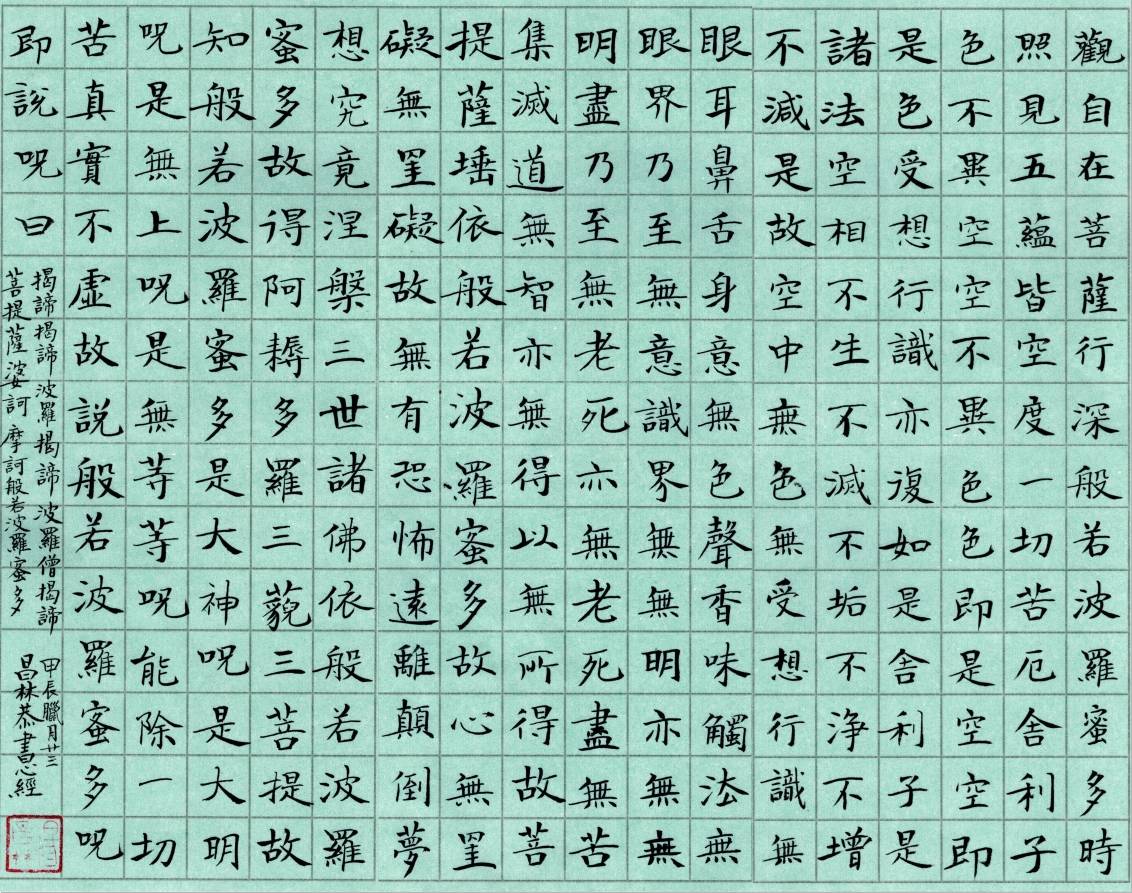 觀自在菩薩行深般若波羅蜜多時
照見五蘊皆空度一切苦厄舍利子
色不異空空不異色色即是空空即
是色受想行識亦復如是舍利子是
諸法空相不生不滅不垢不浄不增
不減是故空中無色無受想行識無
眼耳鼻舌身意無色聲香味觸法無
眼界乃至無意識界無無明亦無無
明盡乃至無老死亦無老死盡無苦
集滅道無智亦無得以無所得故菩
提薩埵依般若波羅蜜多故心無罣
礙無罣礙故無有恐怖遠離顛倒夢
想究竟涅槃三世諸佛依般若波羅
蜜多故得阿耨多羅三藐三菩提故
知般若波羅蜜多是大神呪是大明
呪是無上呪是無等等呪能除一切
苦真實不虛故說般若波羅蜜多呪
即說呪曰
揭諦揭諦波羅揭諦波羅僧揭諦
菩提薩婆訶摩訶般若波羅蜜多
甲辰臘月廿三
昌林恭書心經